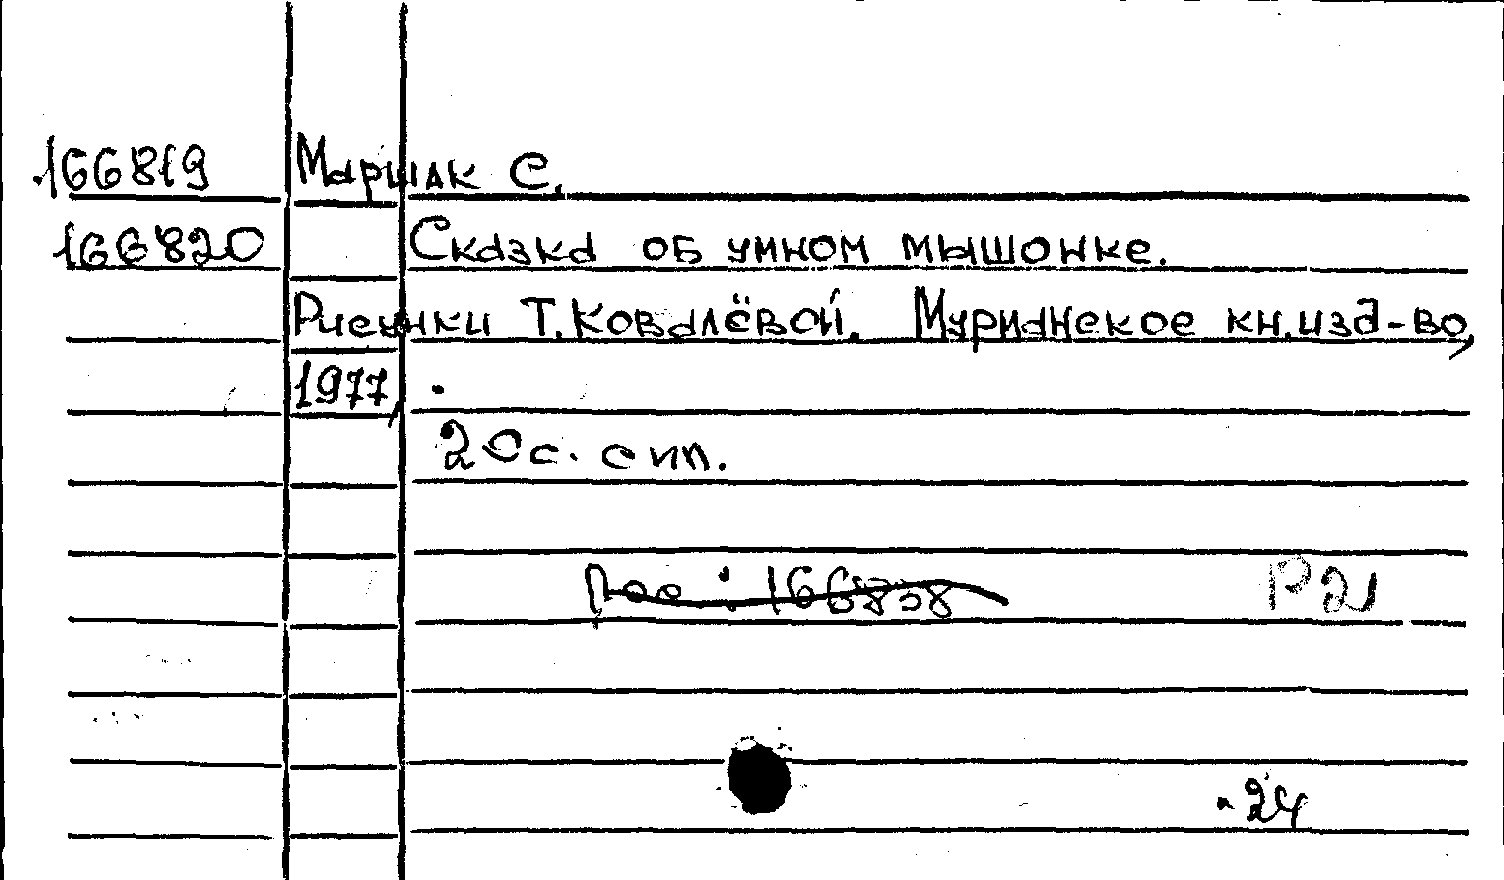 166819 Маршак С.
166820 Сказка об умном мышонке.
Рисунки Т. Ковалёвой. Мурманское кн. изд-во,
1977.
20с. с ил.
Р21
24